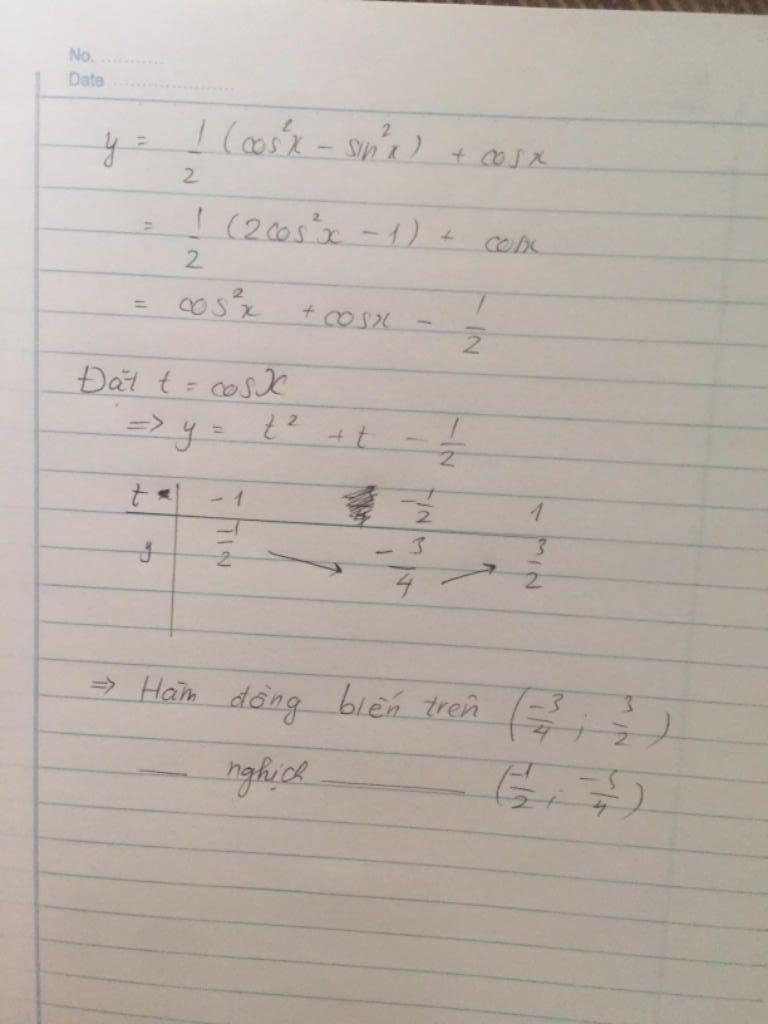 No. ............
Date ......................
y = 1/2 (cos²x - sin²x) + cosx
= 1/2 (2cos²x - 1) + cosx
= cos²x + cosx - 1/2
Đặt t = cosx
=> y = t² + t - 1/2
t -1 -1/2 1
y -1/2 ↘ -3/4 ↗ 3/2
=> Hàm đồng biến trên (-3/4 ; 3/2)
— nghịch ——— (-1/2 ; -3/4)